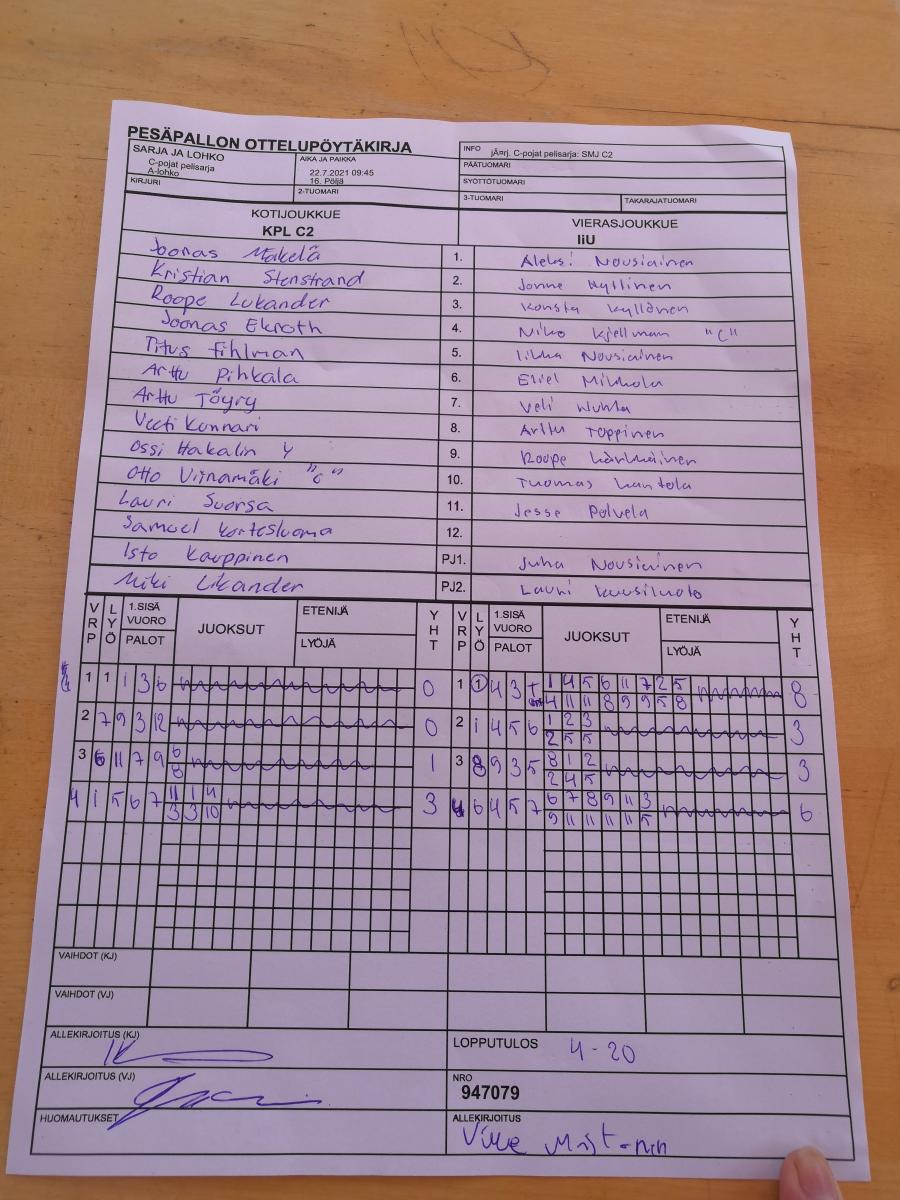 PESÄPALLON OTTELUPÖYTÄKIRJA
SARJA JA LOHKO
C-pojat pelisarja
A-lohko
AIKA JA PAIKKA
22.7.2021 09:45
16. Pöljä
KIRJURI
2-TUOMARI
INFO jÃ¤rj. C-pojat pelisarja: SMJ C2
PÄÄTUOMARI
SYÖTTÖTUOMARI
3-TUOMARI TAKARAJATUOMARI
KOTIJOUKKUE VIERASJOUKKUE
KPL C2 IiU
Joonas Mäkelä 1. Aleksi Nousiainen
Kristian Stenstrand 2. Jonne Kyllönen
Roope Lukander 3. Konsta Kyllönen
Joonas Ekroth 4. Niko Kjellman "C"
Titus Fihlman 5. Iikka Nousiainen
Arttu Pihkala 6. Eliel Mikkola
Arttu Töyry 7. Veli
Veeti Kunnari 8. Arttu Toppinen
Ossi Hakalin 9. Roope Kärkkäinen
Otto Viinamäki "C" 10. Tuomas Kantola
Lauri Suorsa 11. Jesse Polvela
Samuel Kortesluoma 12.
Isto Kauppinen PJ1. Juha Nousiainen
Miki Likander PJ2. Lauri Kuusiluoto
VRP LYÖ 1.SISÄ VUORO PALOT JUOKSUT ETENIJÄ LYÖJÄ YHT VRP LYÖ 1.SISÄ VUORO PALOT JUOKSUT ETENIJÄ LYÖJÄ YHT
1 1 1 3 6 0 1 1 4 3 1 4 5 6 11 7 2 5 8
4 11 11 8 9 9 5 8
2 7 9 3 12 0 2 1 4 5 6 1 2 3 3
2 5 5
3 6 11 7 9 6 1 3 8 9 3 5 8 1 2 3
8 2 4 5
4 1 5 6 7 11 1 4 3 4 6 4 5 7 6 7 8 9 11 3 6
3 3 10 9 11 11 11 11 5
VAIHDOT (KJ)
VAIHDOT (VJ)
ALLEKIRJOITUS (KJ)
LOPPUTULOS 4-20
ALLEKIRJOITUS (VJ)
NRO
947079
HUOMAUTUKSET
ALLEKIRJOITUS
Ville